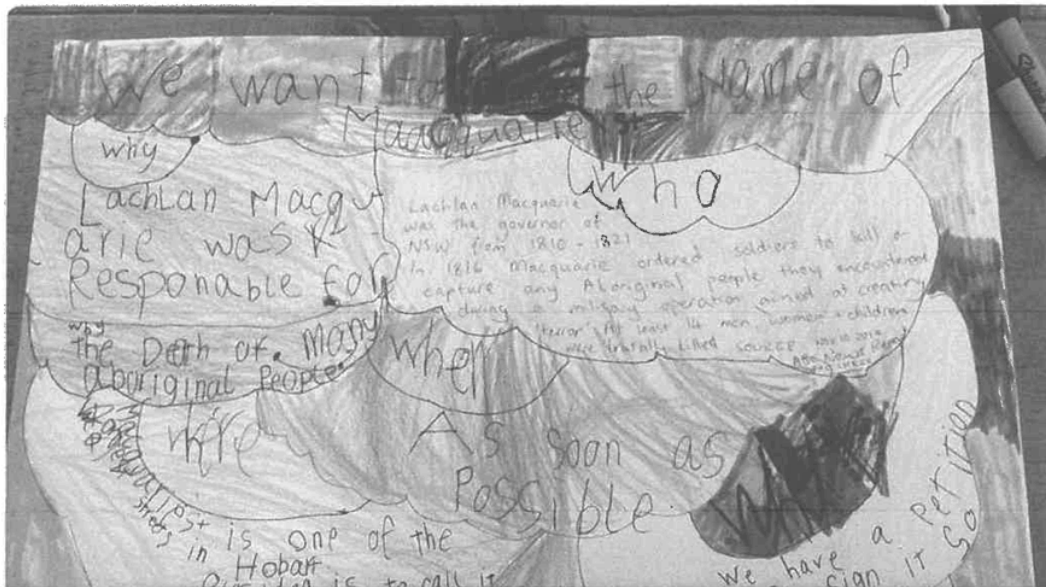 We want to the Name of
Maacquarie st
why
Lachlan Macqu
arie was R
Responable for
why
the Deth of Many
aboriginal People.
who
Lachlan Macquarie
was the governor of
NSW from 1810 - 1821
In 1816 Macquarie ordered soldiers to kill or
capture any Aboriginal people they encountered
during a military operation aimed at creating
"terror" At least 14 men, women + children
were brutally killed SOURCE
ABC News
when
As soon as
Possible.
where
streets in
is one of the
Hobart
is to call it
We have a PetitiON
sign it So